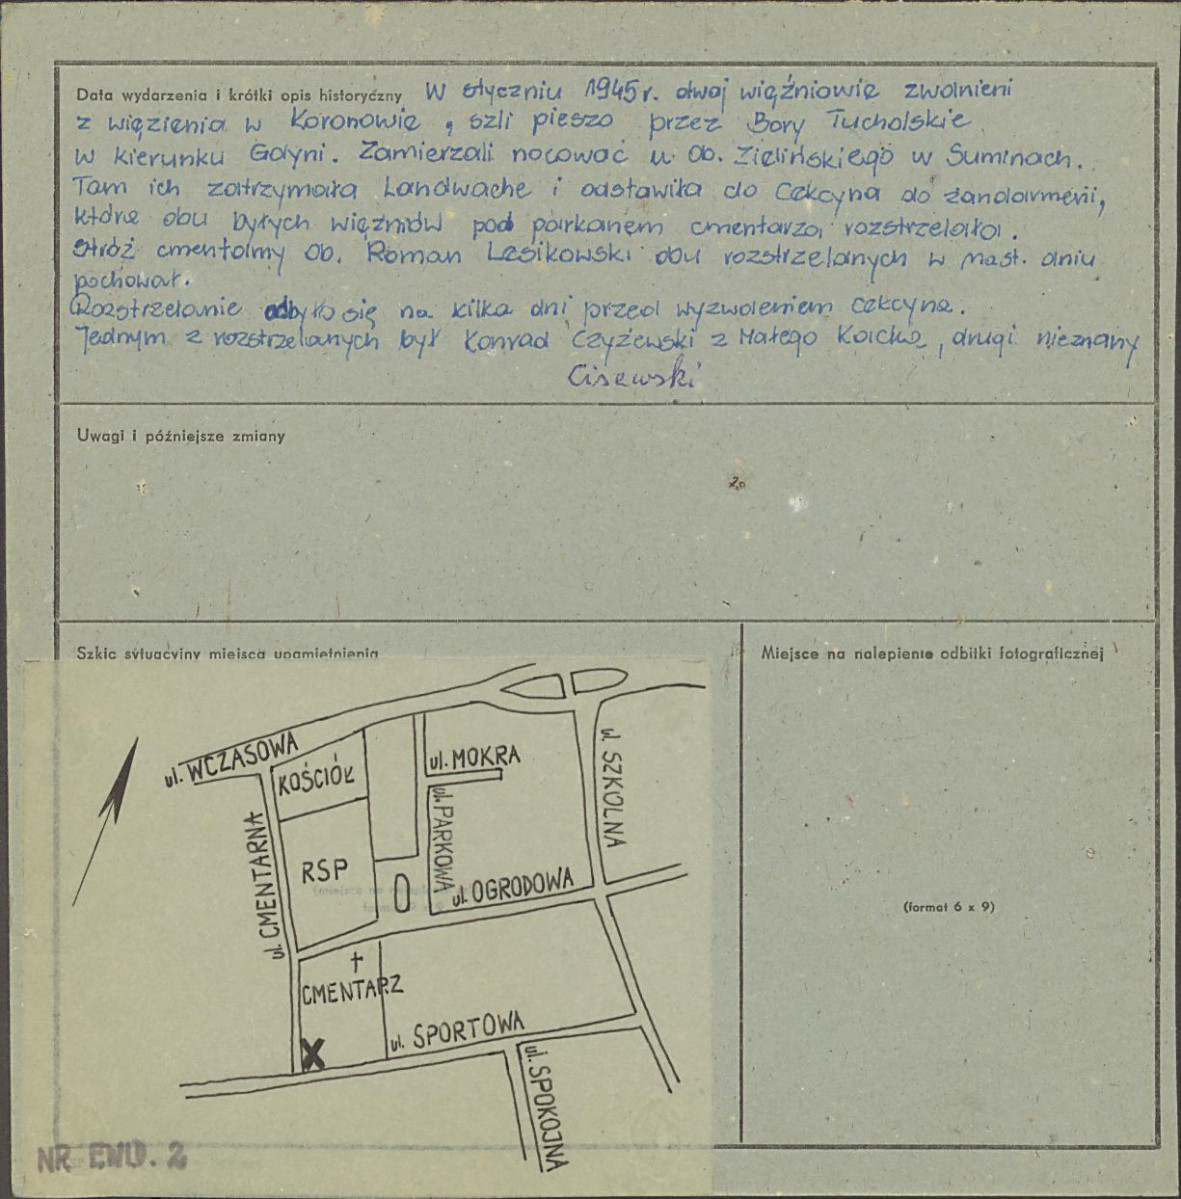 Data wydarzenia i krótki opis historyczny W styczniu 1945 r. dwaj więźniowie zwolnieni
z więzienia w Koronowie, szli pieszo przez Bory Tucholskie
w kierunku Gdyni. Zamierzali nocować u Ob. Zielińskiego w Suminach.
Tam ich zatrzymała Landwache i odstawiła do Cekcyna do żandarmerii,
która obu byłych więźniów pod parkanem cmentarza rozstrzelała.
Stróż cmentarny Ob. Roman Lesikowski obu rozstrzelanych w nast. dniu
pochował.
Rozstrzelanie odbyło się na kilka dni przed wyzwoleniem Cekcyna.
Jednym z rozstrzelanych był Konrad Czyżewski z Małego Kacka, drugi nieznany
Cisewski
Uwagi i późniejsze zmiany
Szkic sytuacyjny miejsca upamiętnienia
Miejsce na nalepienie odbitki fotograficznej
ul. WCZASOWA
KOŚCIÓŁ
ul. MOKRA
ul. SZKOLNA
ul. CMENTARNA
RSP
ul. PARKOWA
ul. OGRODOWA
(format 6 x 9)
CMENTARZ
ul. SPORTOWA
X
ul. SPOKOJNA
NR EWID. 2